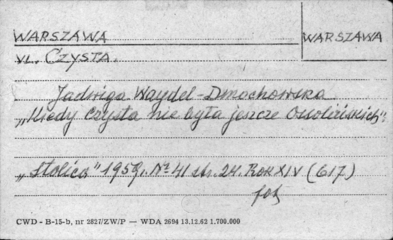 WARSZAWA
WARSZAWA
UL. CZYSTA.
Jadwiga Waydel-Dmochowska
„Kiedy Czysta nie była jeszcze Ossolińskich".
„Stolica" 1959. Nr 41 str. 24. Rok XIV (617)
fot
CWD - B-15-b, nr 2827/ZW/P — WDA 2694 13.12.62 1.700.000